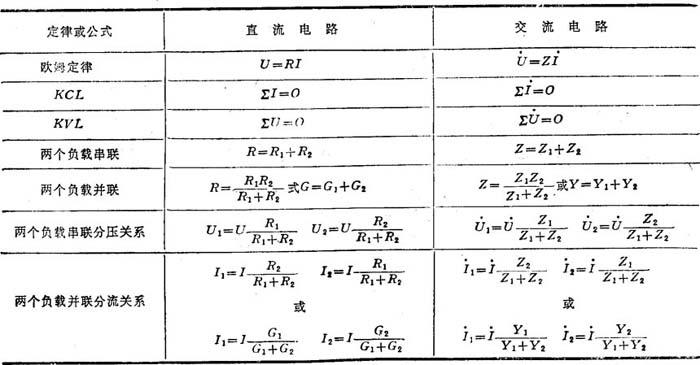 定律或公式 直流电路 交流电路
欧姆定律 U=RI U̇=Zİ
KCL ΣI=O Σİ=O
KVL ΣU=O ΣU̇=O
两个负载串联 R=R₁+R₂ Z=Z₁+Z₂
两个负载并联 R=R₁R₂/(R₁+R₂) 式G=G₁+G₂ Z=Z₁Z₂/(Z₁+Z₂) 或Y=Y₁+Y₂
两个负载串联分压关系 U₁=U R₁/(R₁+R₂) U₂=U R₂/(R₁+R₂) U̇₁=U̇ Z₁/(Z₁+Z₂) U̇₂=U̇ Z₂/(Z₁+Z₂)
两个负载并联分流关系 I₁=I R₂/(R₁+R₂) I₂=I R₁/(R₁+R₂) İ₁=İ Z₂/(Z₁+Z₂) İ₂=İ Z₁/(Z₁+Z₂)
或 或
I₁=I G₁/(G₁+G₂) I₂=I G₂/(G₁+G₂) İ₁=İ Y₁/(Y₁+Y₂) İ₂=İ Y₂/(Y₁+Y₂)